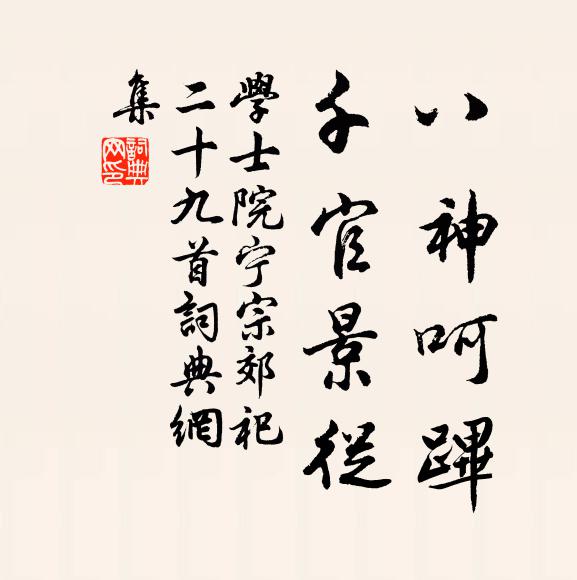 八神呵蹕
千官景從
學士院宁宗郊祀
二十九首詞典網
集
詞典网印